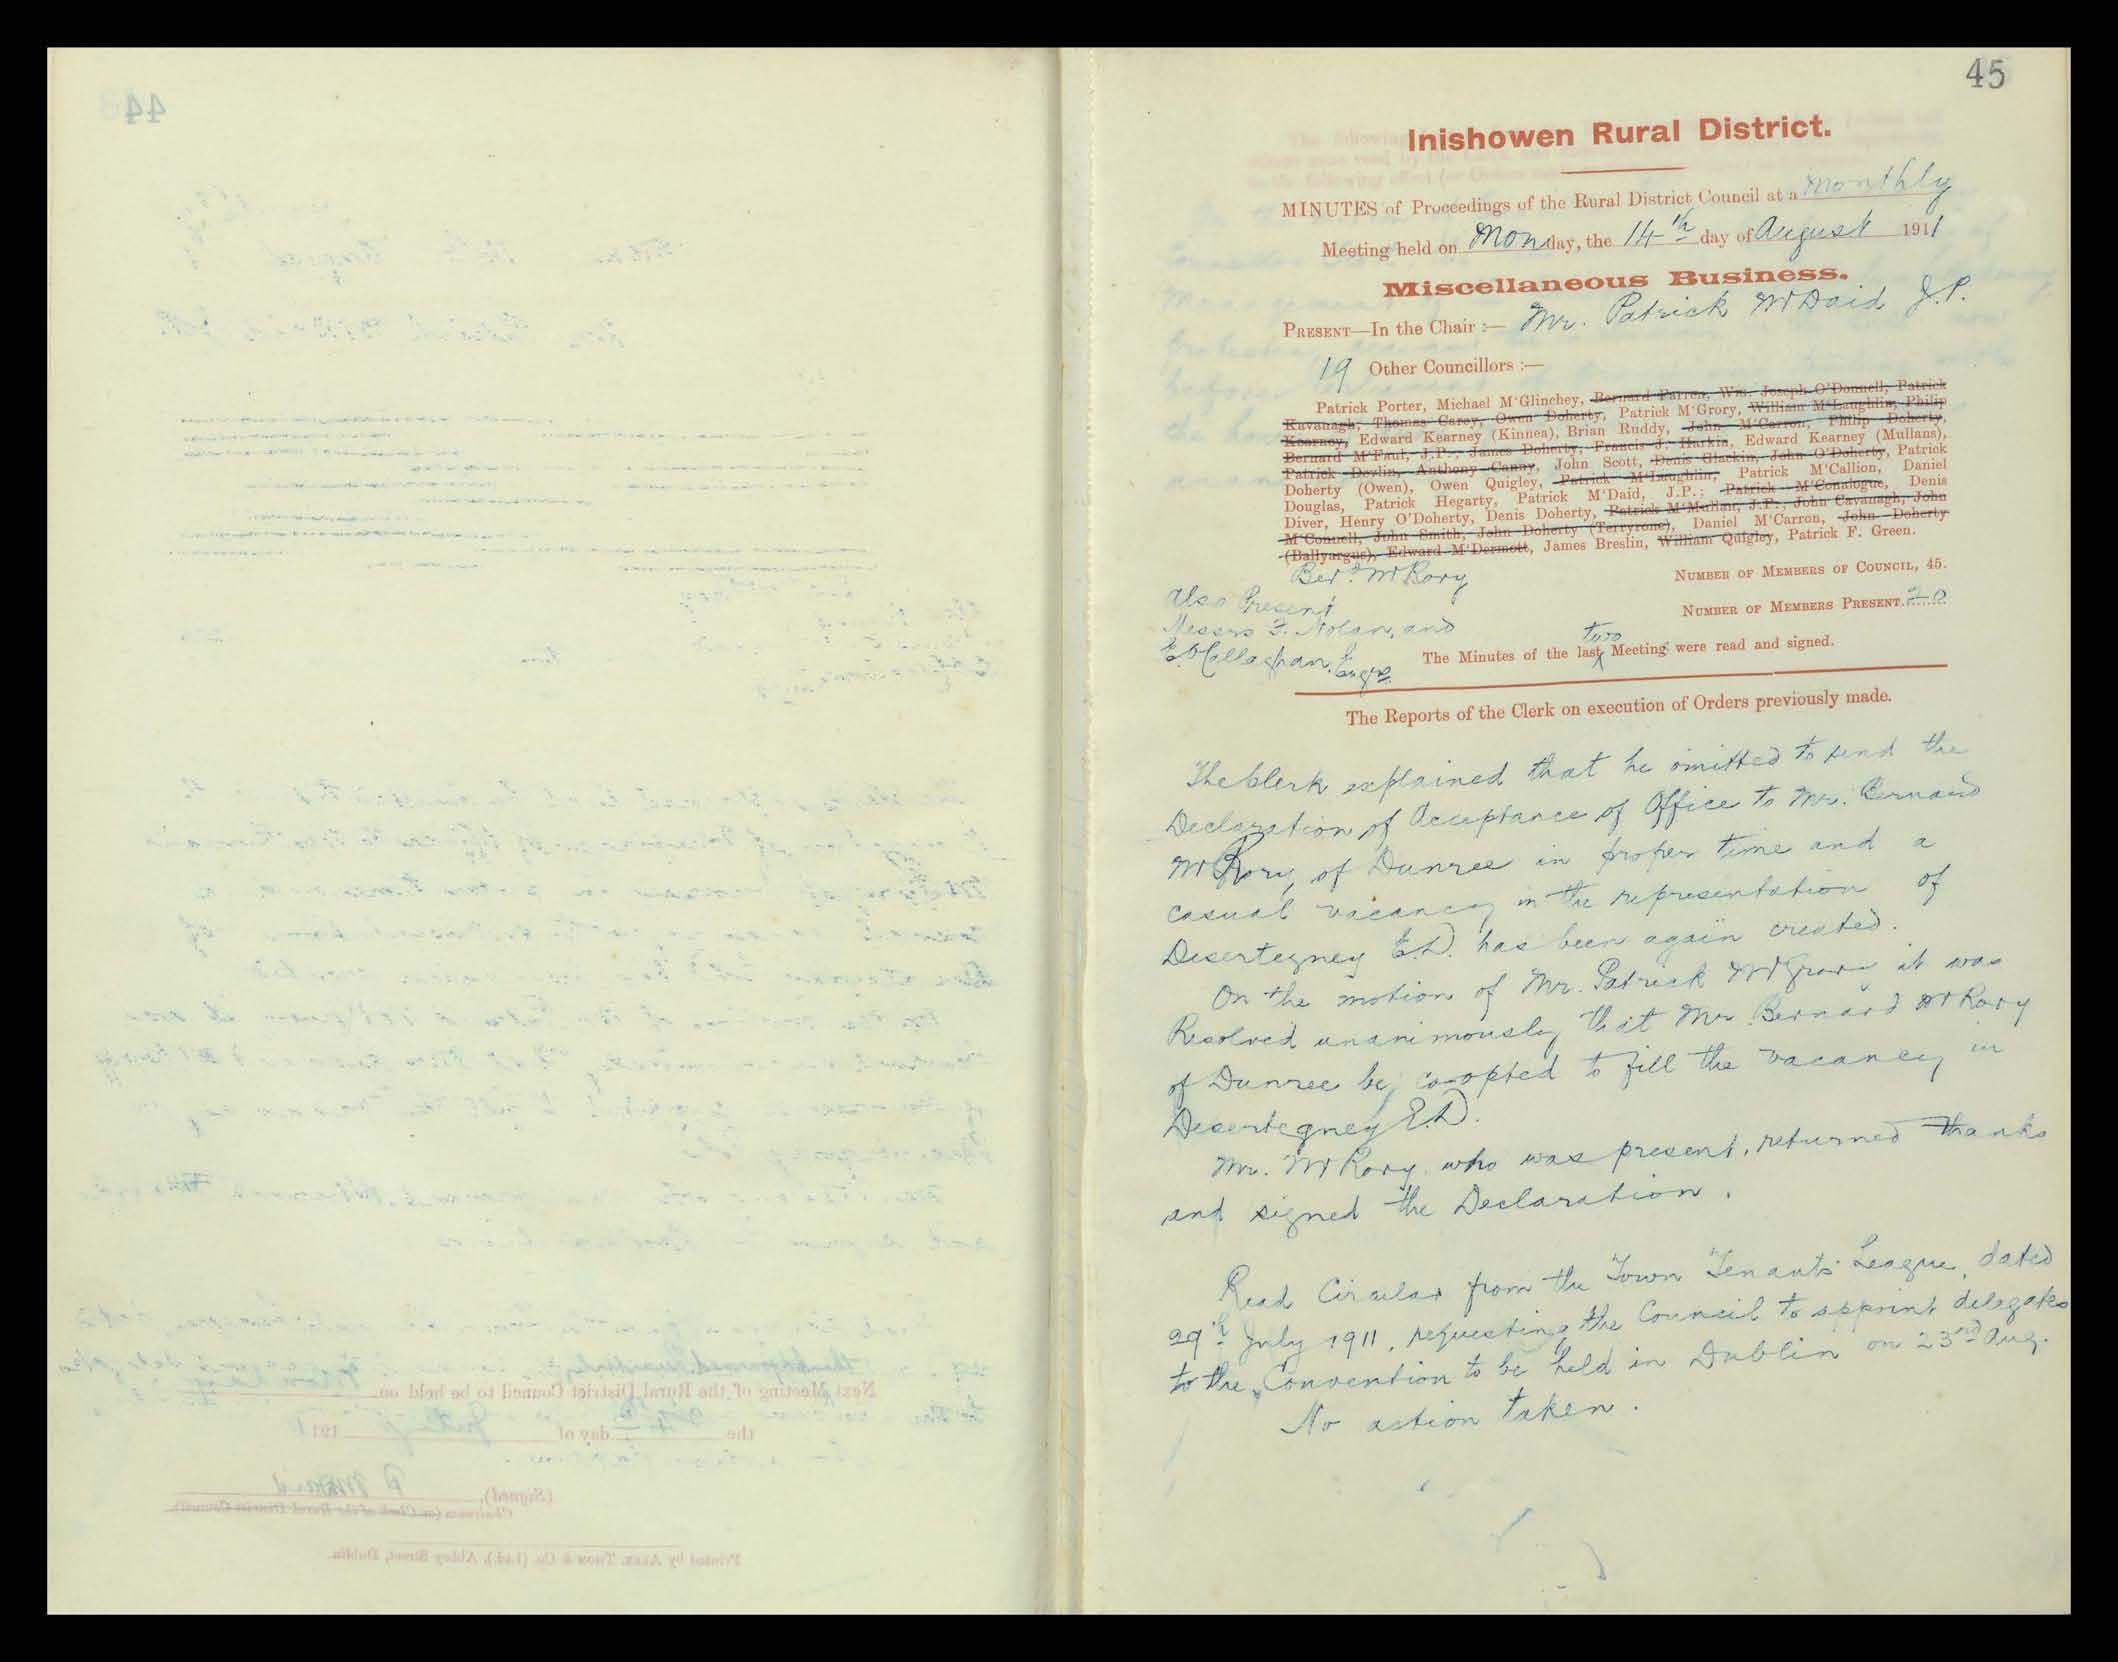 45
Inishowen Rural District.
MINUTES of Proceedings of the Rural District Council at a Monthly
Meeting held on Monday, the 14th day of August 1911
Miscellaneous Business.
PRESENT—In the Chair :— Mr. Patrick McDaid J.P.
19 Other Councillors :—
Patrick Porter, Michael M'Glinchey, Bernard Farren, Wm. Joseph O'Donnell, Patrick
Kavanagh, Thomas Carey, Owen Doherty, Patrick M'Grory, William M'Laughlin, Philip
Kearney, Edward Kearney (Kinnea), Brian Ruddy, John M'Carron, Philip Doherty,
Bernard M'Faul, J.P., James Doherty, Francis J. Harkin, Edward Kearney (Mullans),
Patrick Devlin, Anthony Canny, John Scott, Denis Glackin, John O'Doherty, Patrick
Doherty (Owen), Owen Quigley, Patrick M'Laughlin, Patrick M'Callion, Daniel
Douglas, Patrick Hegarty, Patrick M'Daid, J.P.; Patrick M'Conalogue, Denis
Diver, Henry O'Doherty, Denis Doherty, Patrick M'Mullan, J.P., John Cavanagh, John
M'Connell, John Smith, John Doherty (Terryrone), Daniel M'Carron, John Doherty
(Ballyargus), Edward M'Dermott, James Breslin, William Quigley, Patrick F. Green.
Berd. McRory
NUMBER OF MEMBERS OF COUNCIL, 45.
Also Present
NUMBER OF MEMBERS PRESENT 20
Messrs F. Nolan, and
E. O'Callaghan, Engrs.
The Minutes of the last two Meetings were read and signed.
The Reports of the Clerk on execution of Orders previously made.
The Clerk explained that he omitted to send the
Declaration of Acceptance of Office to Mr. Bernard
McRory, of Dunree in proper time and a
casual vacancy in the representation of
Desertegney E.D. has been again created.
On the motion of Mr. Patrick McGrory it was
Resolved unanimously that Mr. Bernard McRory
of Dunree be co-opted to fill the vacancy in
Desertegney E.D.
Mr. McRory, who was present, returned thanks
and signed the Declaration.
Read Circular from the Town Tenants League, dated
29th July 1911, requesting the Council to appoint delegates
to the Convention to be held in Dublin on 23rd Aug.
No action taken.